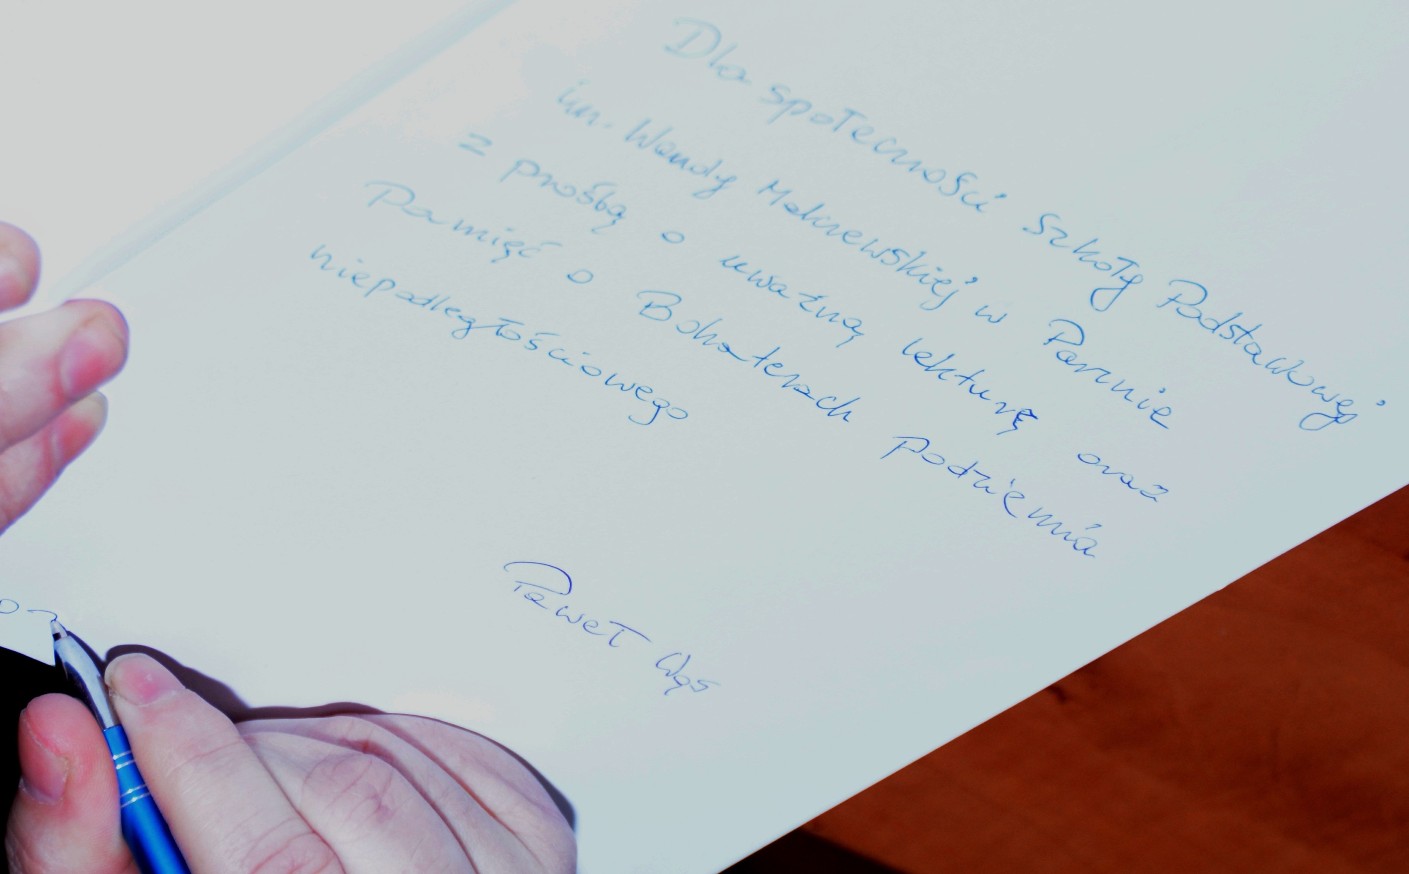 Dla społeczności Szkoły Podstawowej
im. Wandy Makuewskiej w Parznie
z prośbą o uważną lekturę oraz
Pamięć o Bohaterach podziemia
niepodległościowego
Paweł Wąs